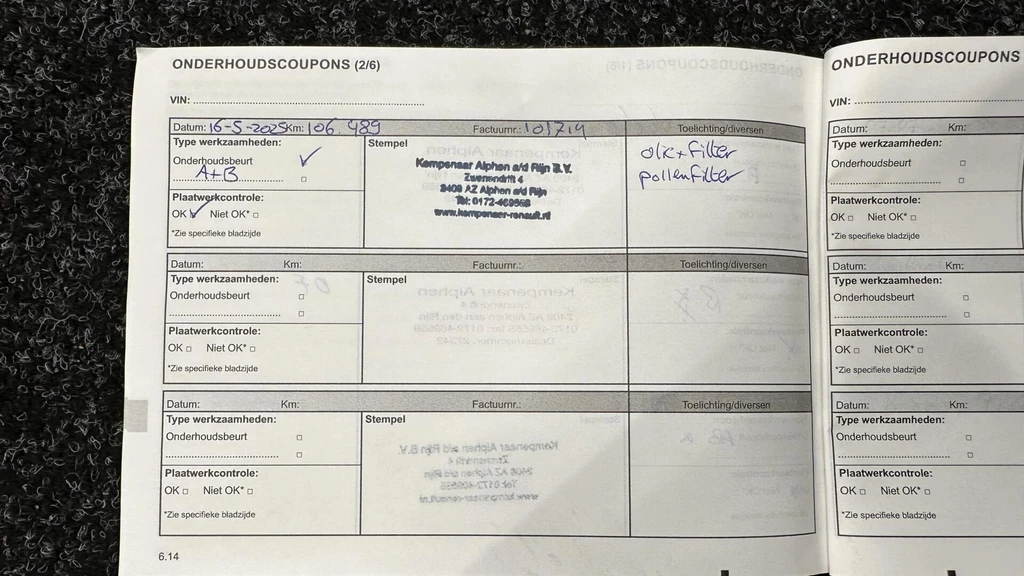 ONDERHOUDSCOUPONS (2/6)
VIN:
Datum: 16-5-2025 Km: 106.489 Factuurnr.: 101714 Toelichting/diversen
Type werkzaamheden:
Onderhoudsbeurt
A+B
Plaatwerkcontrole:
OK Niet OK*
*Zie specifieke bladzijde
Stempel
Kempenaar Alphen a/d Rijn B.V.
Zwenendrift 4
2408 AZ Alphen a/d Rijn
Tel: 0172-469555
www.kempenaer-renault.nl
olk+filter
pollenfilter
Datum: Km: Factuurnr.: Toelichting/diversen
Type werkzaamheden:
Onderhoudsbeurt
Plaatwerkcontrole:
OK Niet OK*
*Zie specifieke bladzijde
Stempel
Datum: Km: Factuurnr.: Toelichting/diversen
Type werkzaamheden:
Onderhoudsbeurt
Plaatwerkcontrole:
OK Niet OK*
*Zie specifieke bladzijde
Stempel
6.14
ONDERHOUDSCOUPONS
VIN:
Datum: Km:
Type werkzaamheden:
Onderhoudsbeurt
Plaatwerkcontrole:
OK Niet OK*
*Zie specifieke bladzijde
Datum: Km:
Type werkzaamheden:
Onderhoudsbeurt
Plaatwerkcontrole:
OK Niet OK*
*Zie specifieke bladzijde
Datum: Km:
Type werkzaamheden:
Onderhoudsbeurt
Plaatwerkcontrole:
OK Niet OK*
*Zie specifieke bladzijde